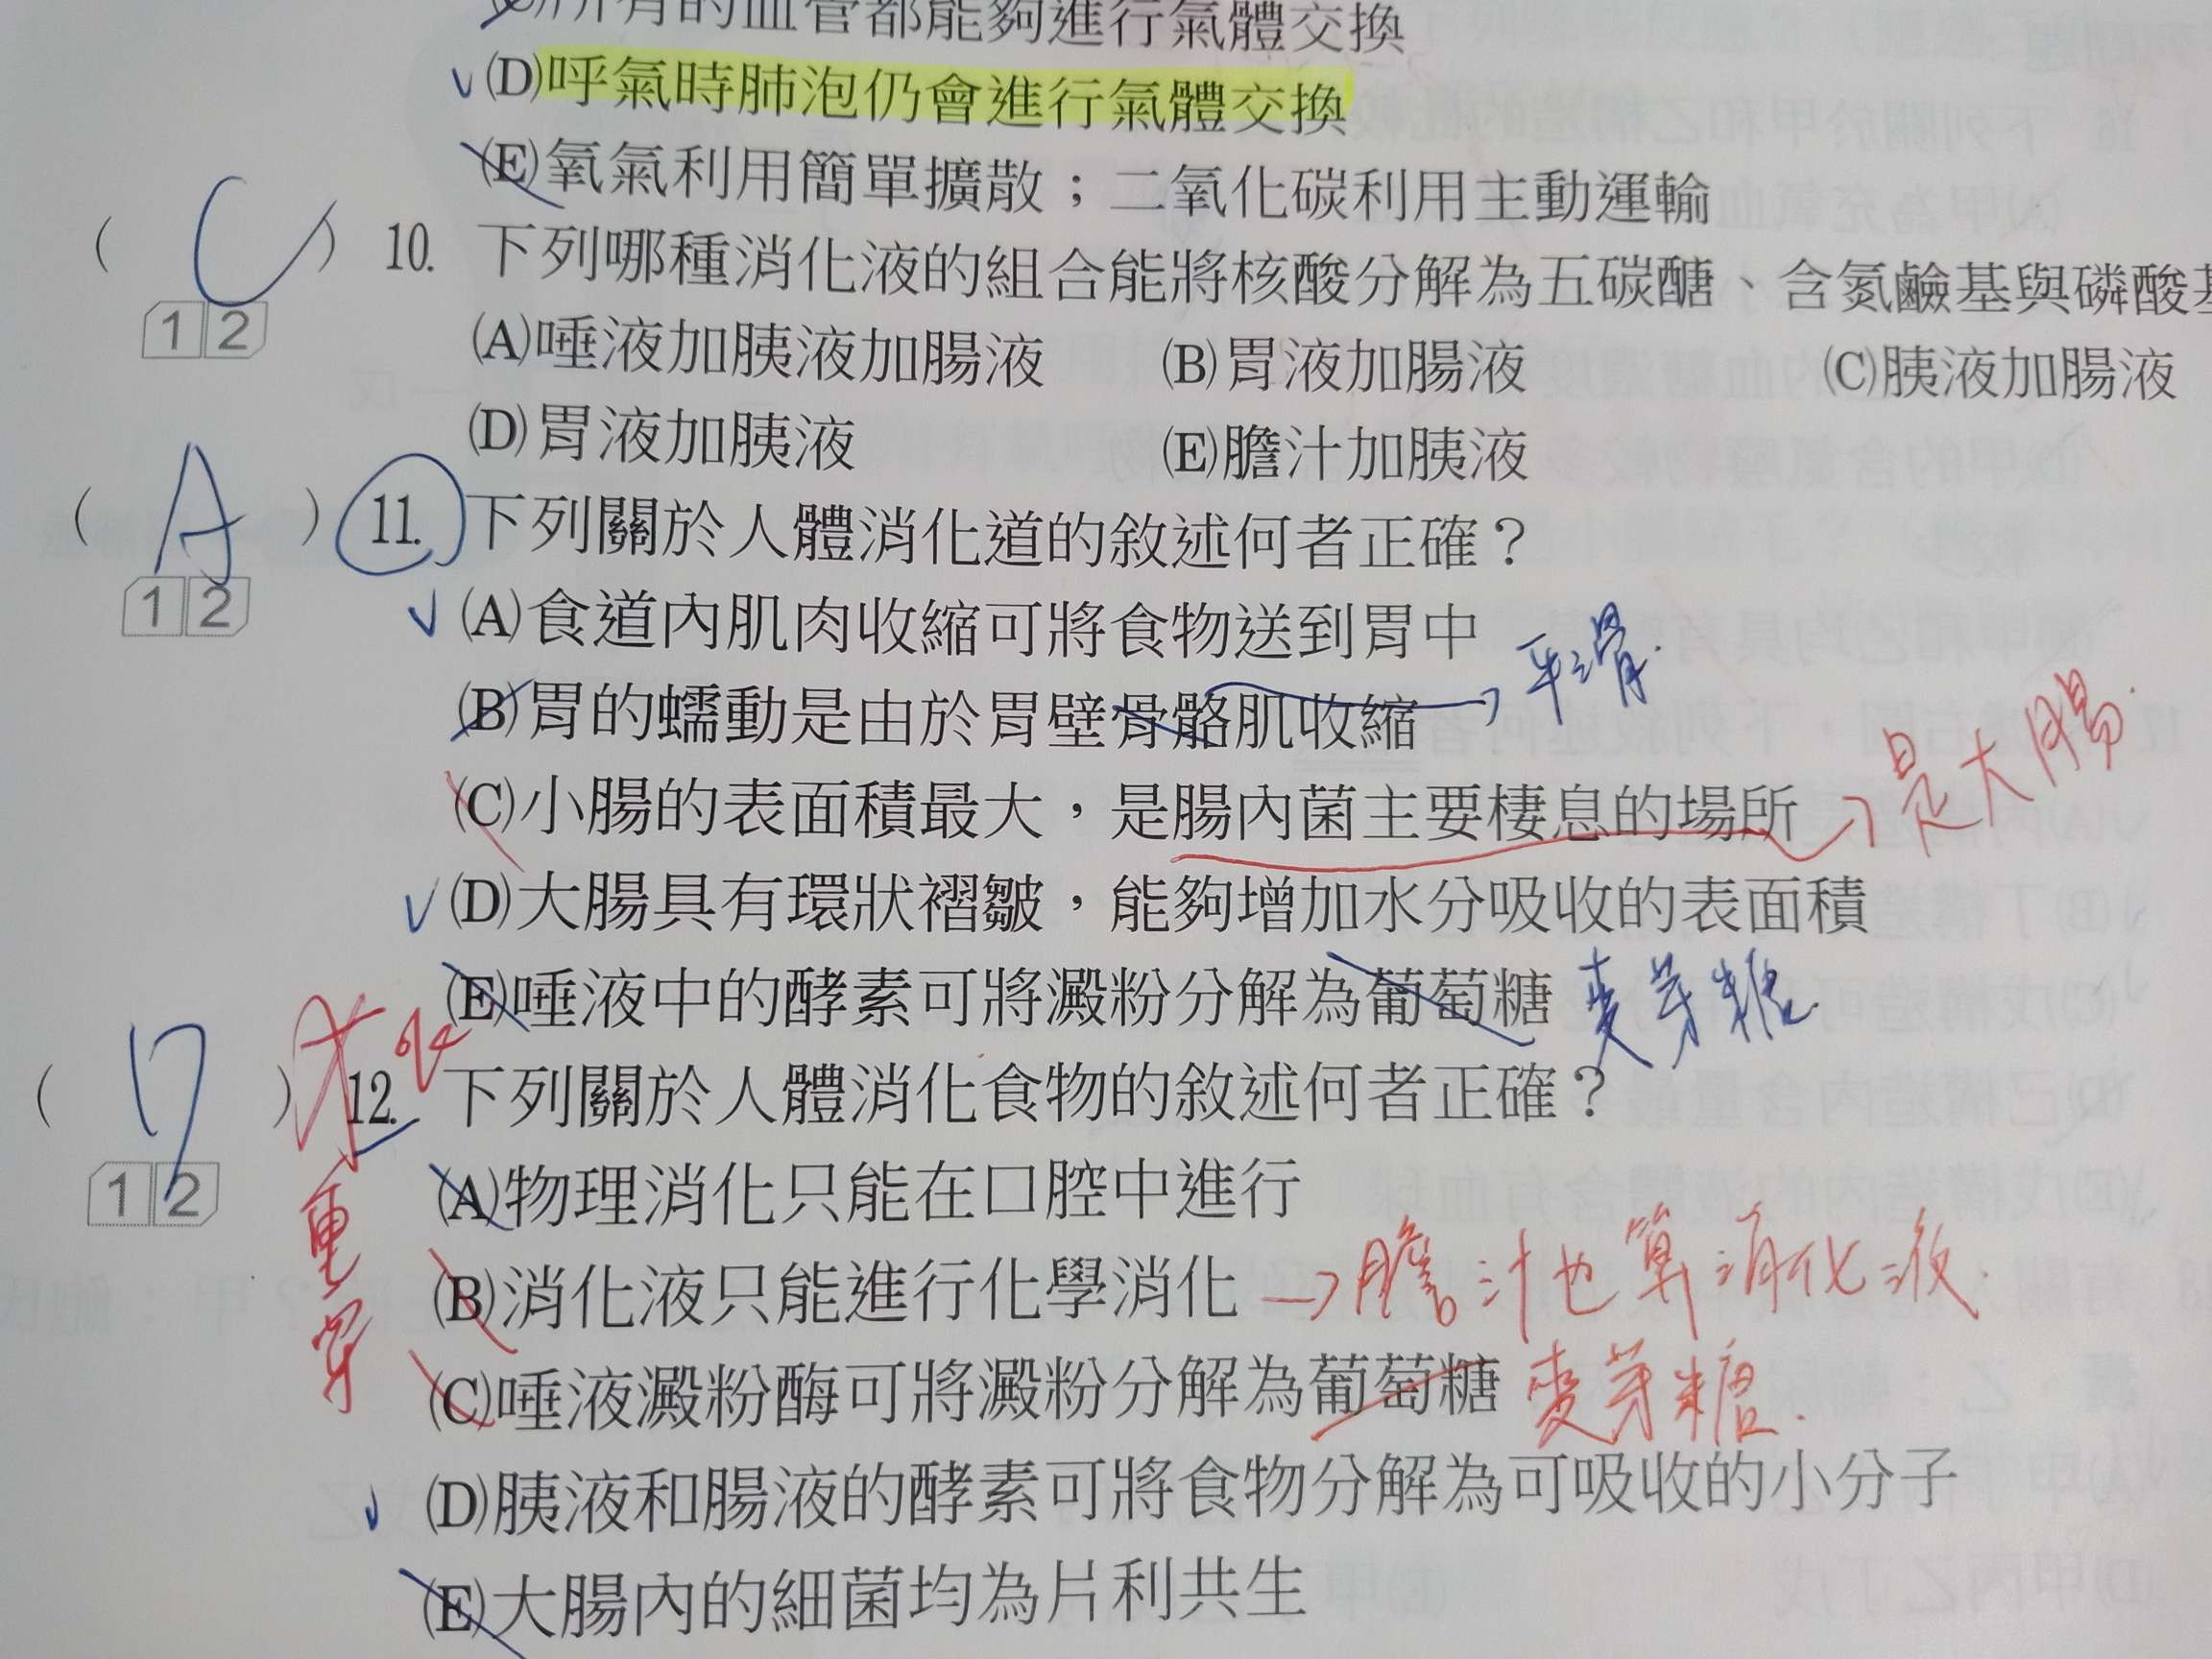 所有的血管都能夠進行氣體交換
(D)呼氣時肺泡仍會進行氣體交換
(E)氧氣利用簡單擴散；二氧化碳利用主動運輸
( C ) 10. 下列哪種消化液的組合能將核酸分解為五碳醣、含氮鹼基與磷酸
1 2
(A)唾液加胰液加腸液 (B)胃液加腸液 (C)胰液加腸液
(D)胃液加胰液 (E)膽汁加胰液
( A ) 11. 下列關於人體消化道的敘述何者正確？
1 2
(A)食道內肌肉收縮可將食物送到胃中
(B)胃的蠕動是由於胃壁骨骼肌收縮 → 平滑
(C)小腸的表面積最大，是腸內菌主要棲息的場所 → 是大腸
(D)大腸具有環狀褶皺，能夠增加水分吸收的表面積
(E)唾液中的酵素可將澱粉分解為葡萄糖 麥芽糖
( D ) 12. 下列關於人體消化食物的敘述何者正確？
1 2
重寫
(A)物理消化只能在口腔中進行
(B)消化液只能進行化學消化 → 膽汁也算消化液
(C)唾液澱粉酶可將澱粉分解為葡萄糖 麥芽糖
(D)胰液和腸液的酵素可將食物分解為可吸收的小分子
(E)大腸內的細菌均為片利共生